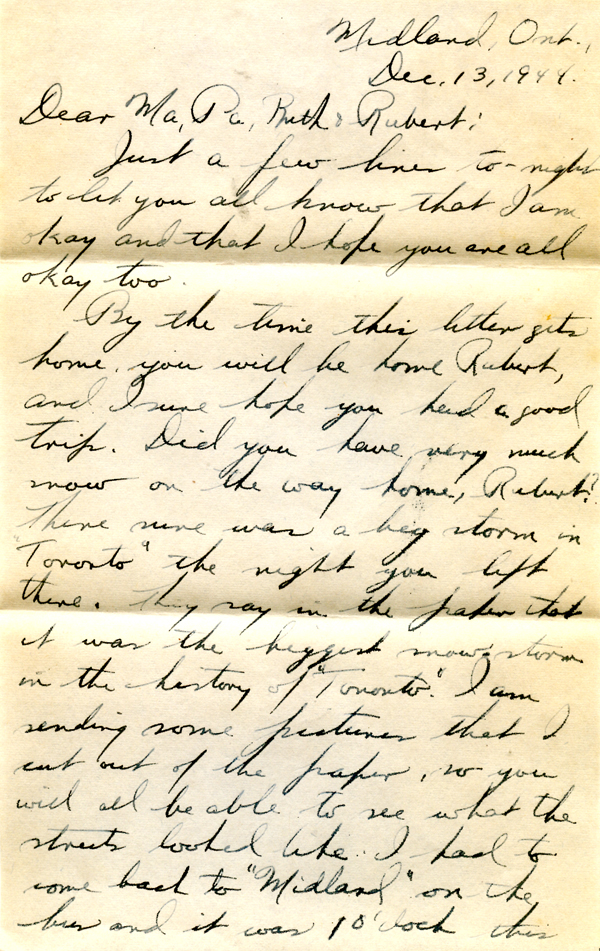 Midland, Ont.,
Dec. 13, 1944.
Dear Ma, Pa, Ruth & Rubert:
Just a few lines to-night
to let you all know that I am
okay and that I hope you are all
okay too.
By the time this letter gets
home, you will be home Rubert,
and I sure hope you had a good
trip. Did you have very much
snow on the way home, Rubert?
There sure was a big storm in
"Toronto" the night you left
there. They say in the paper that
it was the biggest snow-storm
in the history of "Toronto". I am
sending some pictures that I
cut out of the paper, so you
will all be able to see what the
streets looked like. I had to
come back to "Midland" on the
bus and it was 1 o'clock this